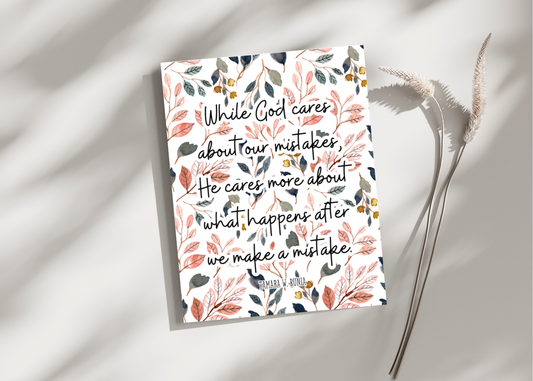 While God cares
about our mistakes,
He cares more about
what happens after
we make a mistake.